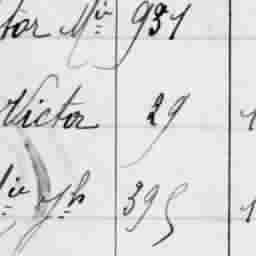 tor Mie 931
Victor 29 1
lie Jh 395 1